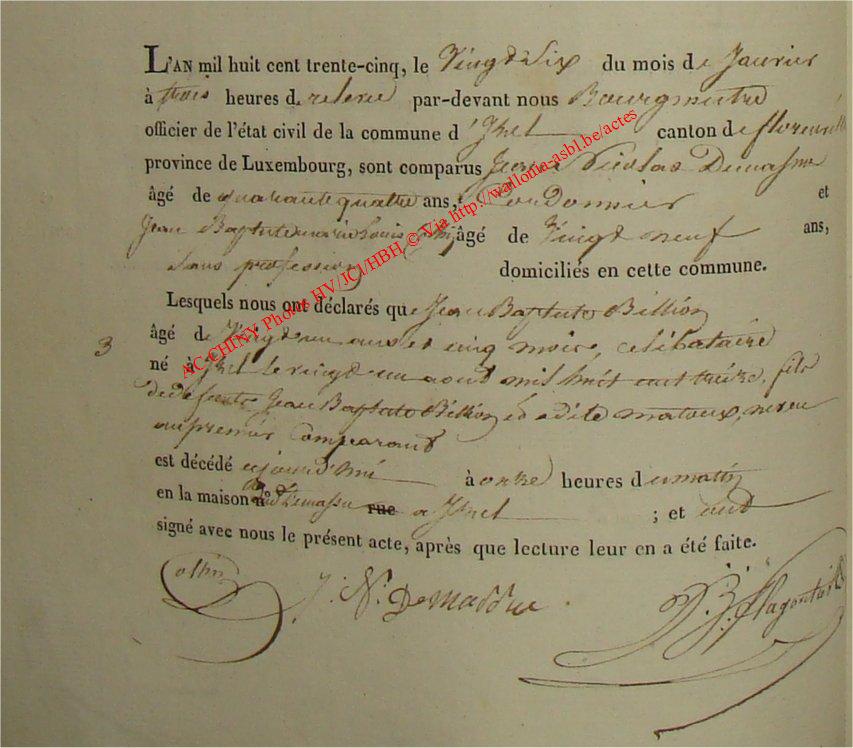 L'AN mil huit cent trente-cinq, le Vingt Six du mois de Janvier
à trois heures de relevée par-devant nous Bourgmestre
officier de l'état civil de la commune d'Izel canton de florenville
province de Luxembourg, sont comparus Jean Nicolas Demasure
âgé de quarante quatre ans, Cordonnier et
Jean Baptiste marie Louis âgé de Vingt neuf ans,
Sans profession domiciliés en cette commune.
Lesquels nous ont déclarés que Jean Baptiste Billion
3
âgé de Vingt un ans et cinq mois, celibataire
né à Izel le vingt un aout mil huit cent treize, fils
de defunts Jean Baptiste Billion et neveu
au premier Comparant
est décédé aujourd'hui à onze heures du matin
en la maison rue a Izel ; et ont
signé avec nous le présent acte, après que lecture leur en a été faite.
J. N. Demassue
AC-CHINY Photos HV/JCl/HBH, © Via http://wallonia-asbl.be/actes